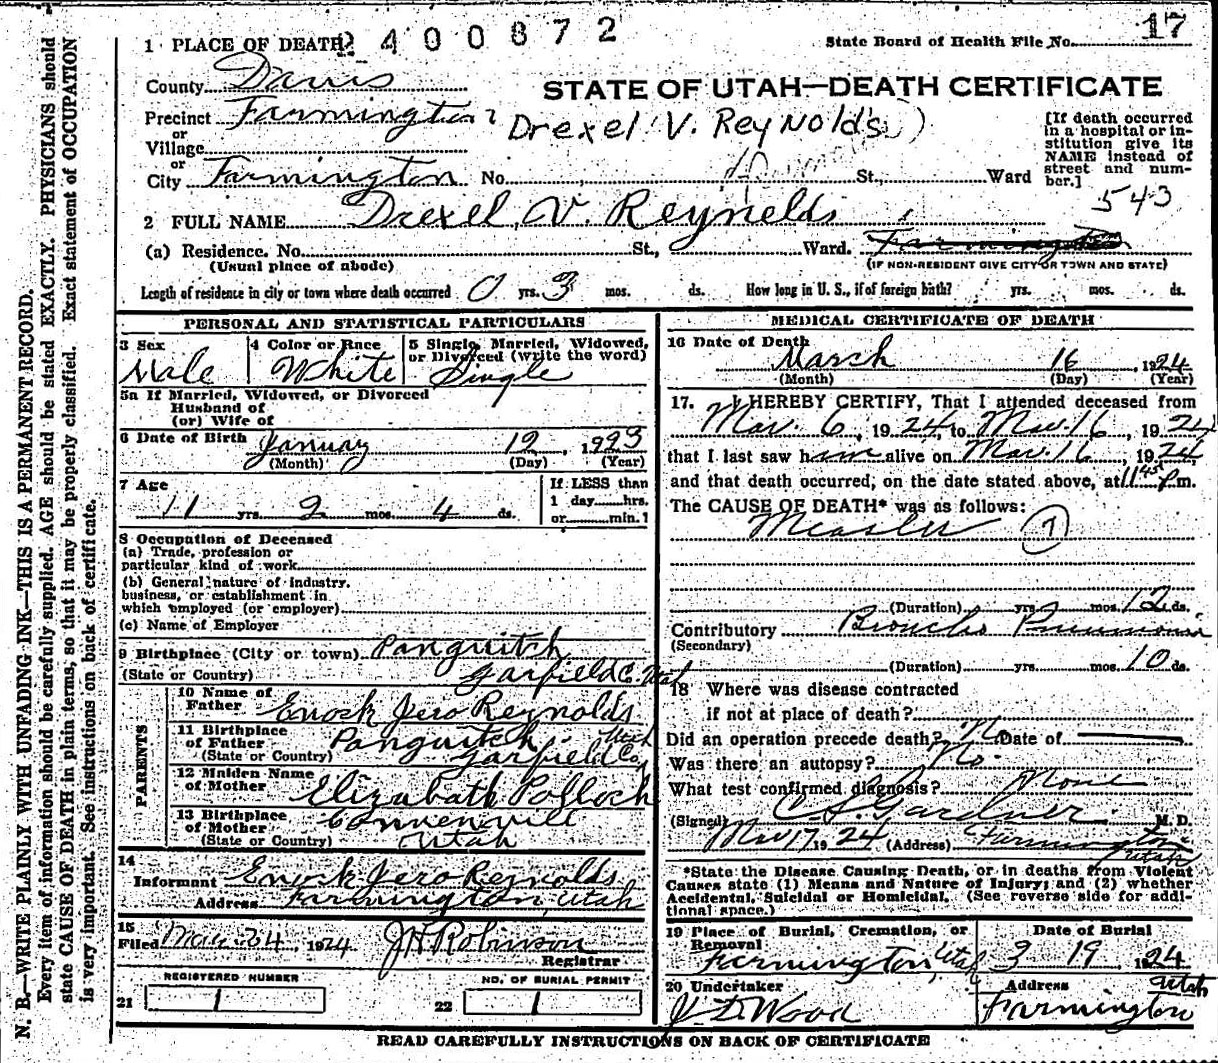 2400872
17
State Board of Health File No.
1 PLACE OF DEATH
County Davis
STATE OF UTAH—DEATH CERTIFICATE
Precinct Farmington
Drexel V. Reynolds
or
Village
or
City Farmington No. St., Ward
[If death occurred in a hospital or institution give its NAME instead of street and number.]
543
2 FULL NAME Drexel V. Reynolds
(a) Residence. No. St., Ward. Farmington
(Usual place of abode)
(IF NON-RESIDENT GIVE CITY OR TOWN AND STATE)
Length of residence in city or town where death occurred 0 yrs. 3 mos. ds. How long in U. S., if of foreign birth? yrs. mos. ds.
PERSONAL AND STATISTICAL PARTICULARS
3 Sex
Male
4 Color or Race
White
5 Single, Married, Widowed,
or Divorced (write the word)
Single
5a If Married, Widowed, or Divorced
Husband of
(or) Wife of
6 Date of Birth January 12, 1923
(Month) (Day) (Year)
7 Age
11 yrs. 2 mos. 4 ds.
If LESS than
1 day hrs.
or min.?
8 Occupation of Deceased
(a) Trade, profession or
particular kind of work
(b) General nature of industry,
business, or establishment in
which employed (or employer)
(c) Name of Employer
9 Birthplace (City or town) Panguitch
(State or Country) Garfield C. Utah
PARENTS
10 Name of
Father Enock Jero Reynolds
11 Birthplace
of Father Panguitch Utah
(State or Country) Garfield Co,
12 Maiden Name
of Mother Elizabath Pollock
13 Birthplace
of Mother
(State or Country) Utah
14
Informant Enock Jero Reynolds
Address Farmington, Utah
15
Filed Mar 24, 1924 J H Robinson
Registrar
REGISTERED NUMBER
21 1
NO. OF BURIAL PERMIT
22 1
MEDICAL CERTIFICATE OF DEATH
16 Date of Death
March 16, 1924
(Month) (Day) (Year)
17. I HEREBY CERTIFY, That I attended deceased from
Mar. 6, 1924, to Mar. 16, 1924
that I last saw him alive on Mar. 16, 1924,
and that death occurred, on the date stated above, at 11 45 P m.
The CAUSE OF DEATH* was as follows:
Measles 7
(Duration) yrs. mos. 12 ds.
Contributory Broncho Pneumonia
(Secondary)
(Duration) yrs. mos. 10 ds.
18 Where was disease contracted
if not at place of death?
Did an operation precede death? No Date of
Was there an autopsy? No.
What test confirmed diagnosis? None
(Signed) C S. Gardner M. D.
Mar 17, 1924 (Address) Farmington
Utah
*State the Disease Causing Death, or in deaths from Violent
Causes state (1) Means and Nature of Injury; and (2) whether
Accidental, Suicidal or Homicidal. (See reverse side for additional space.)
19 Place of Burial, Cremation, or
Removal
Farmington, Utah
Date of Burial
3 19, 1924
20 Undertaker
J D Wood
Address
Utah
Farmington
READ CAREFULLY INSTRUCTIONS ON BACK OF CERTIFICATE
N. B.—WRITE PLAINLY WITH UNFADING INK—THIS IS A PERMANENT RECORD.
Every item of information should be carefully supplied. AGE should be stated EXACTLY. PHYSICIANS should
state CAUSE OF DEATH in plain terms, so that it may be properly classified. Exact statement of OCCUPATION
is very important. See instructions on back of certificate.